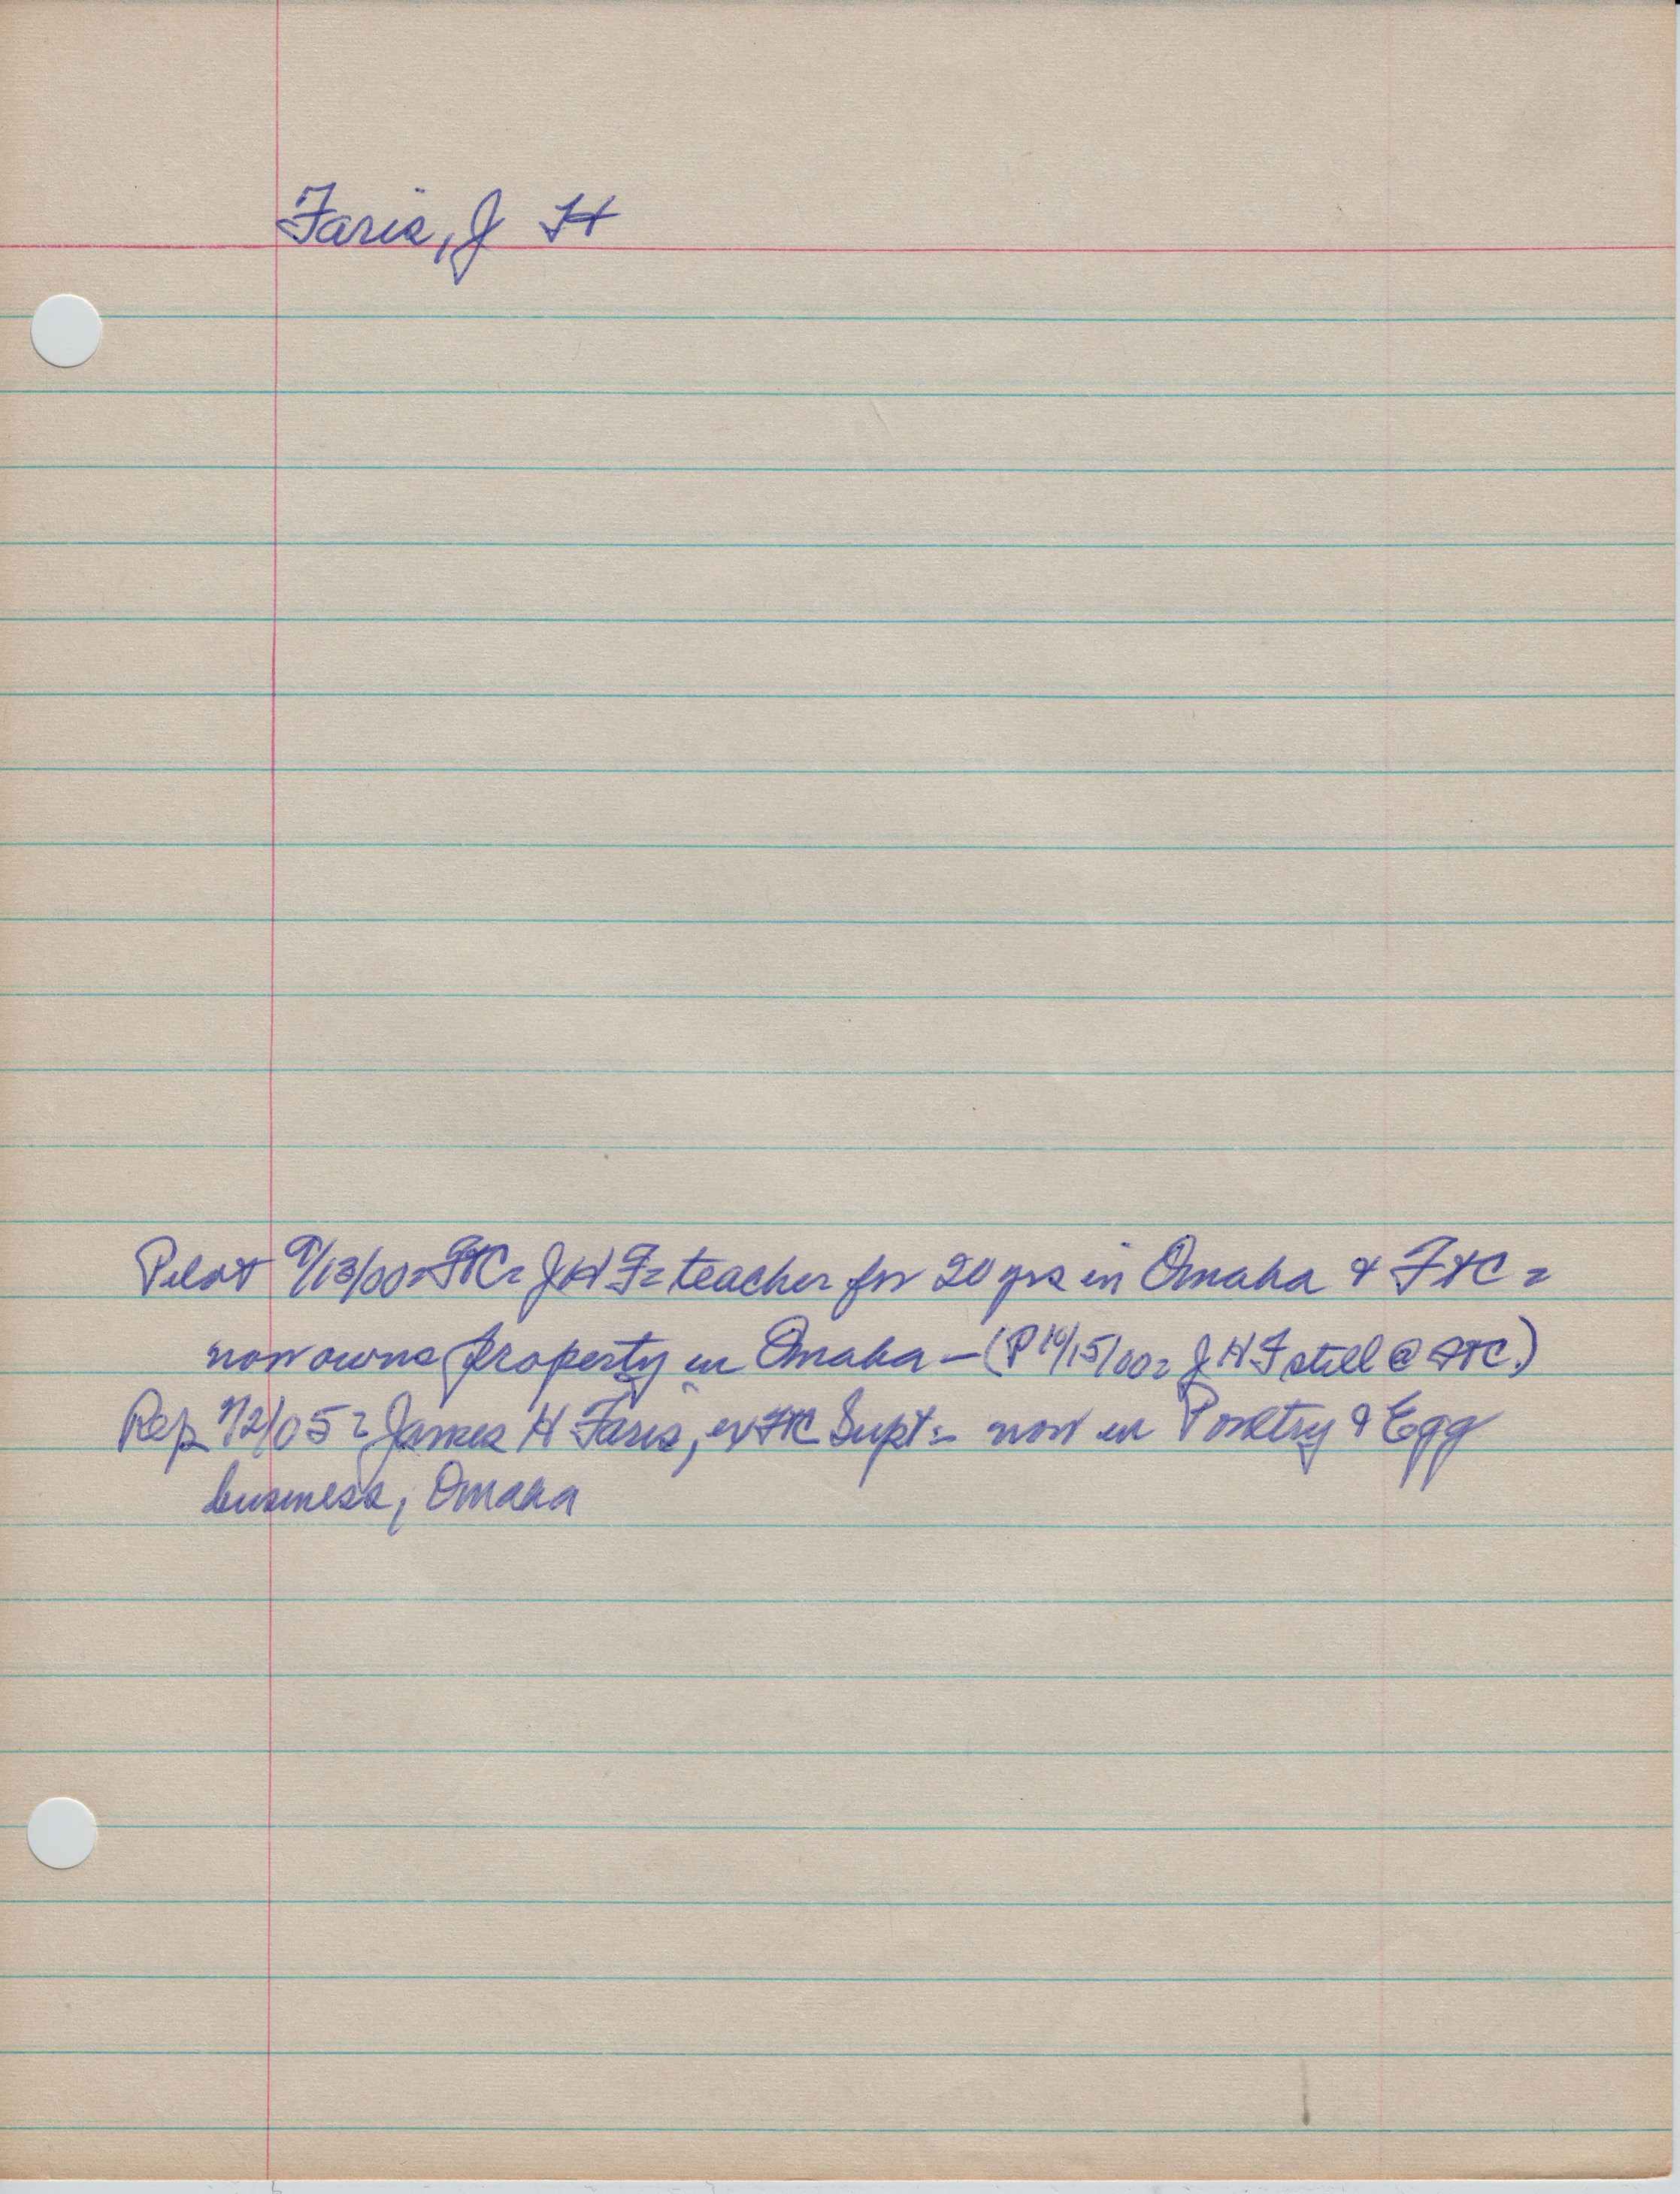 Faris, J H
Pilot 9/13/00 = FtC = J H F = teacher for 20 yrs in Omaha & FtC =
now owns property in Omaha — (P 10/15/00 = J H F still @ FtC.)
Rep 9/2/05 = James H Faris, ex FtC Supt = now in Poultry & Egg
business, Omaha